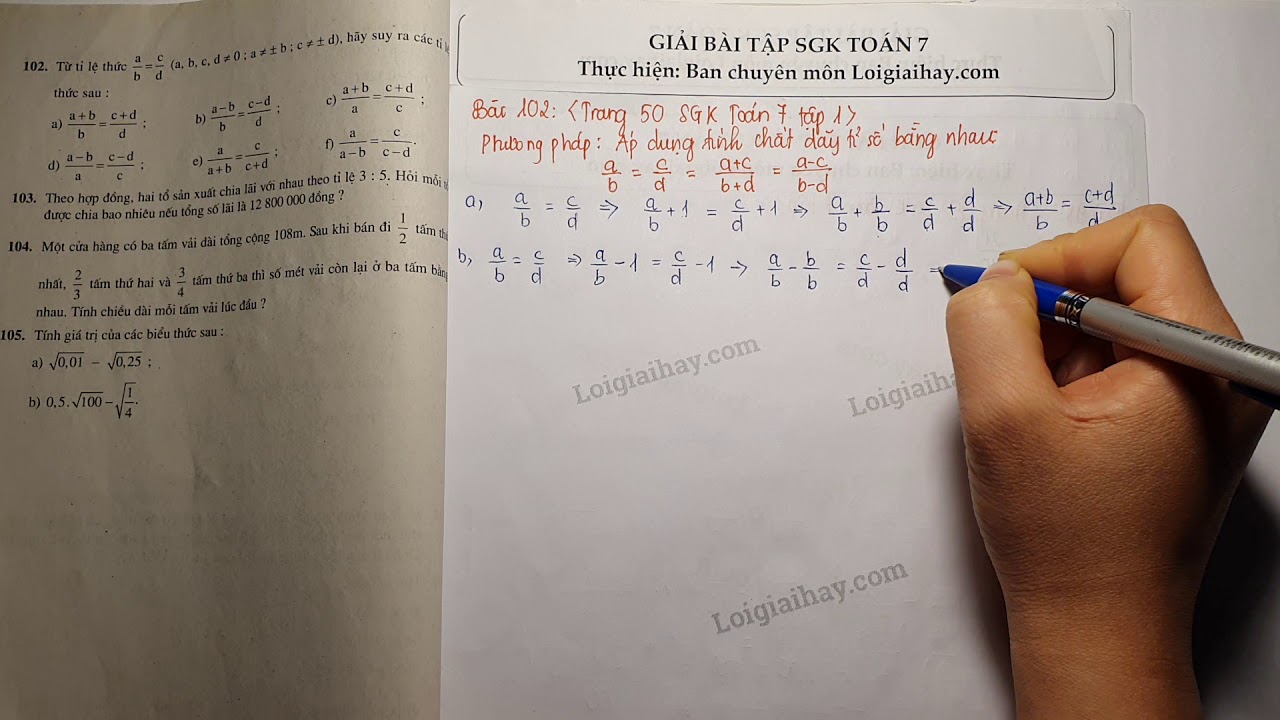 102. Từ tỉ lệ thức a/b = c/d (a, b, c, d ≠ 0 ; a ≠ ± b ; c ≠ ± d), hãy suy ra các tỉ
thức sau :
a) (a+b)/b = (c+d)/d ; b) (a−b)/b = (c−d)/d ; c) (a+b)/a = (c+d)/c ;
d) (a−b)/a = (c−d)/c ; e) a/(a+b) = c/(c+d) ; f) a/(a−b) = c/(c−d).
103. Theo hợp đồng, hai tổ sản xuất chia lãi với nhau theo tỉ lệ 3 : 5. Hỏi mỗi
được chia bao nhiêu nếu tổng số lãi là 12 800 000 đồng ?
104. Một cửa hàng có ba tấm vải dài tổng cộng 108m. Sau khi bán đi 1/2 tấm
nhất, 2/3 tấm thứ hai và 3/4 tấm thứ ba thì số mét vải còn lại ở ba tấm bằng
nhau. Tính chiều dài mỗi tấm vải lúc đầu ?
105. Tính giá trị của các biểu thức sau :
a) √0,01 − √0,25 ;
b) 0,5.√100 − √(1/4).
GIẢI BÀI TẬP SGK TOÁN 7
Thực hiện: Ban chuyên môn Loigiaihay.com
Bài 102: <Trang 50 SGK Toán 7 tập 1>
Phương pháp: Áp dụng tính chất dãy tỉ số bằng nhau
a/b = c/d = (a+c)/(b+d) = (a-c)/(b-d)
a, a/b = c/d ⇒ a/b + 1 = c/d + 1 ⇒ a/b + b/b = c/d + d/d ⇒ (a+b)/b = (c+d)/d
b, a/b = c/d ⇒ a/b − 1 = c/d − 1 → a/b − b/b = c/d − d/d =
Loigiaihay.com
Loigiaihay
Loigiaihay.com